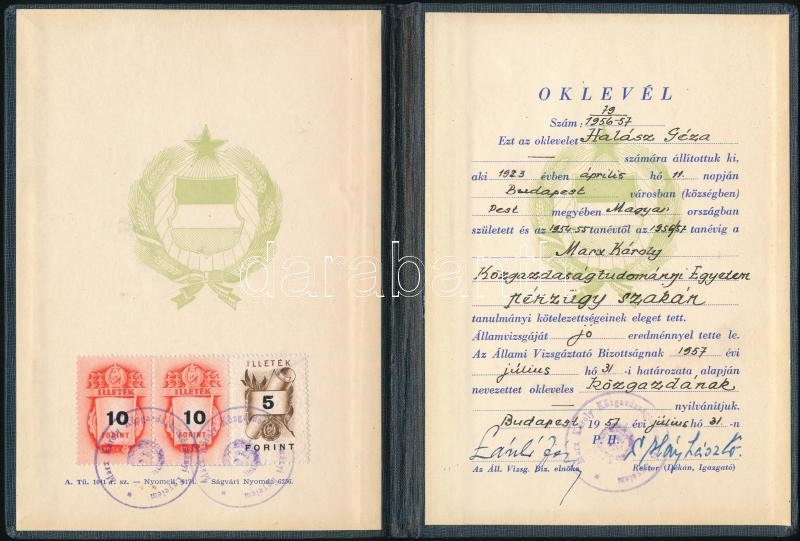 ILLETÉK ILLETÉK ILLETÉK
10 10 5
FORINT FORINT FORINT
A. Tü. sz. — Nyomell. — Ságvári Nyomda
darabanth
OKLEVÉL
79
Szám: 1956-57
Ezt az oklevelet Halász Géza
számára állítottuk ki,
aki 1923 évben április hó 11. napján
Budapest városban (községben)
Pest megyében Magyar országban
született és az 1954-55 tanévtől az 1956/57 tanévig a
Marx Károly
Közgazdaságtudományi Egyetem
pénzügy szakán
tanulmányi kötelezettségeinek eleget tett.
Államvizsgáját jó eredménnyel tette le.
Az Állami Vizsgáztató Bizottságnak 1957 évi
július hó 31-i határozata alapján
nevezettet okleveles közgazdának
nyilvánítjuk.
Budapest 1957 évi július hó 31-n
P. H.
Az Áll. Vizsg. Biz. elnöke Rektor (Dékán, Igazgató)